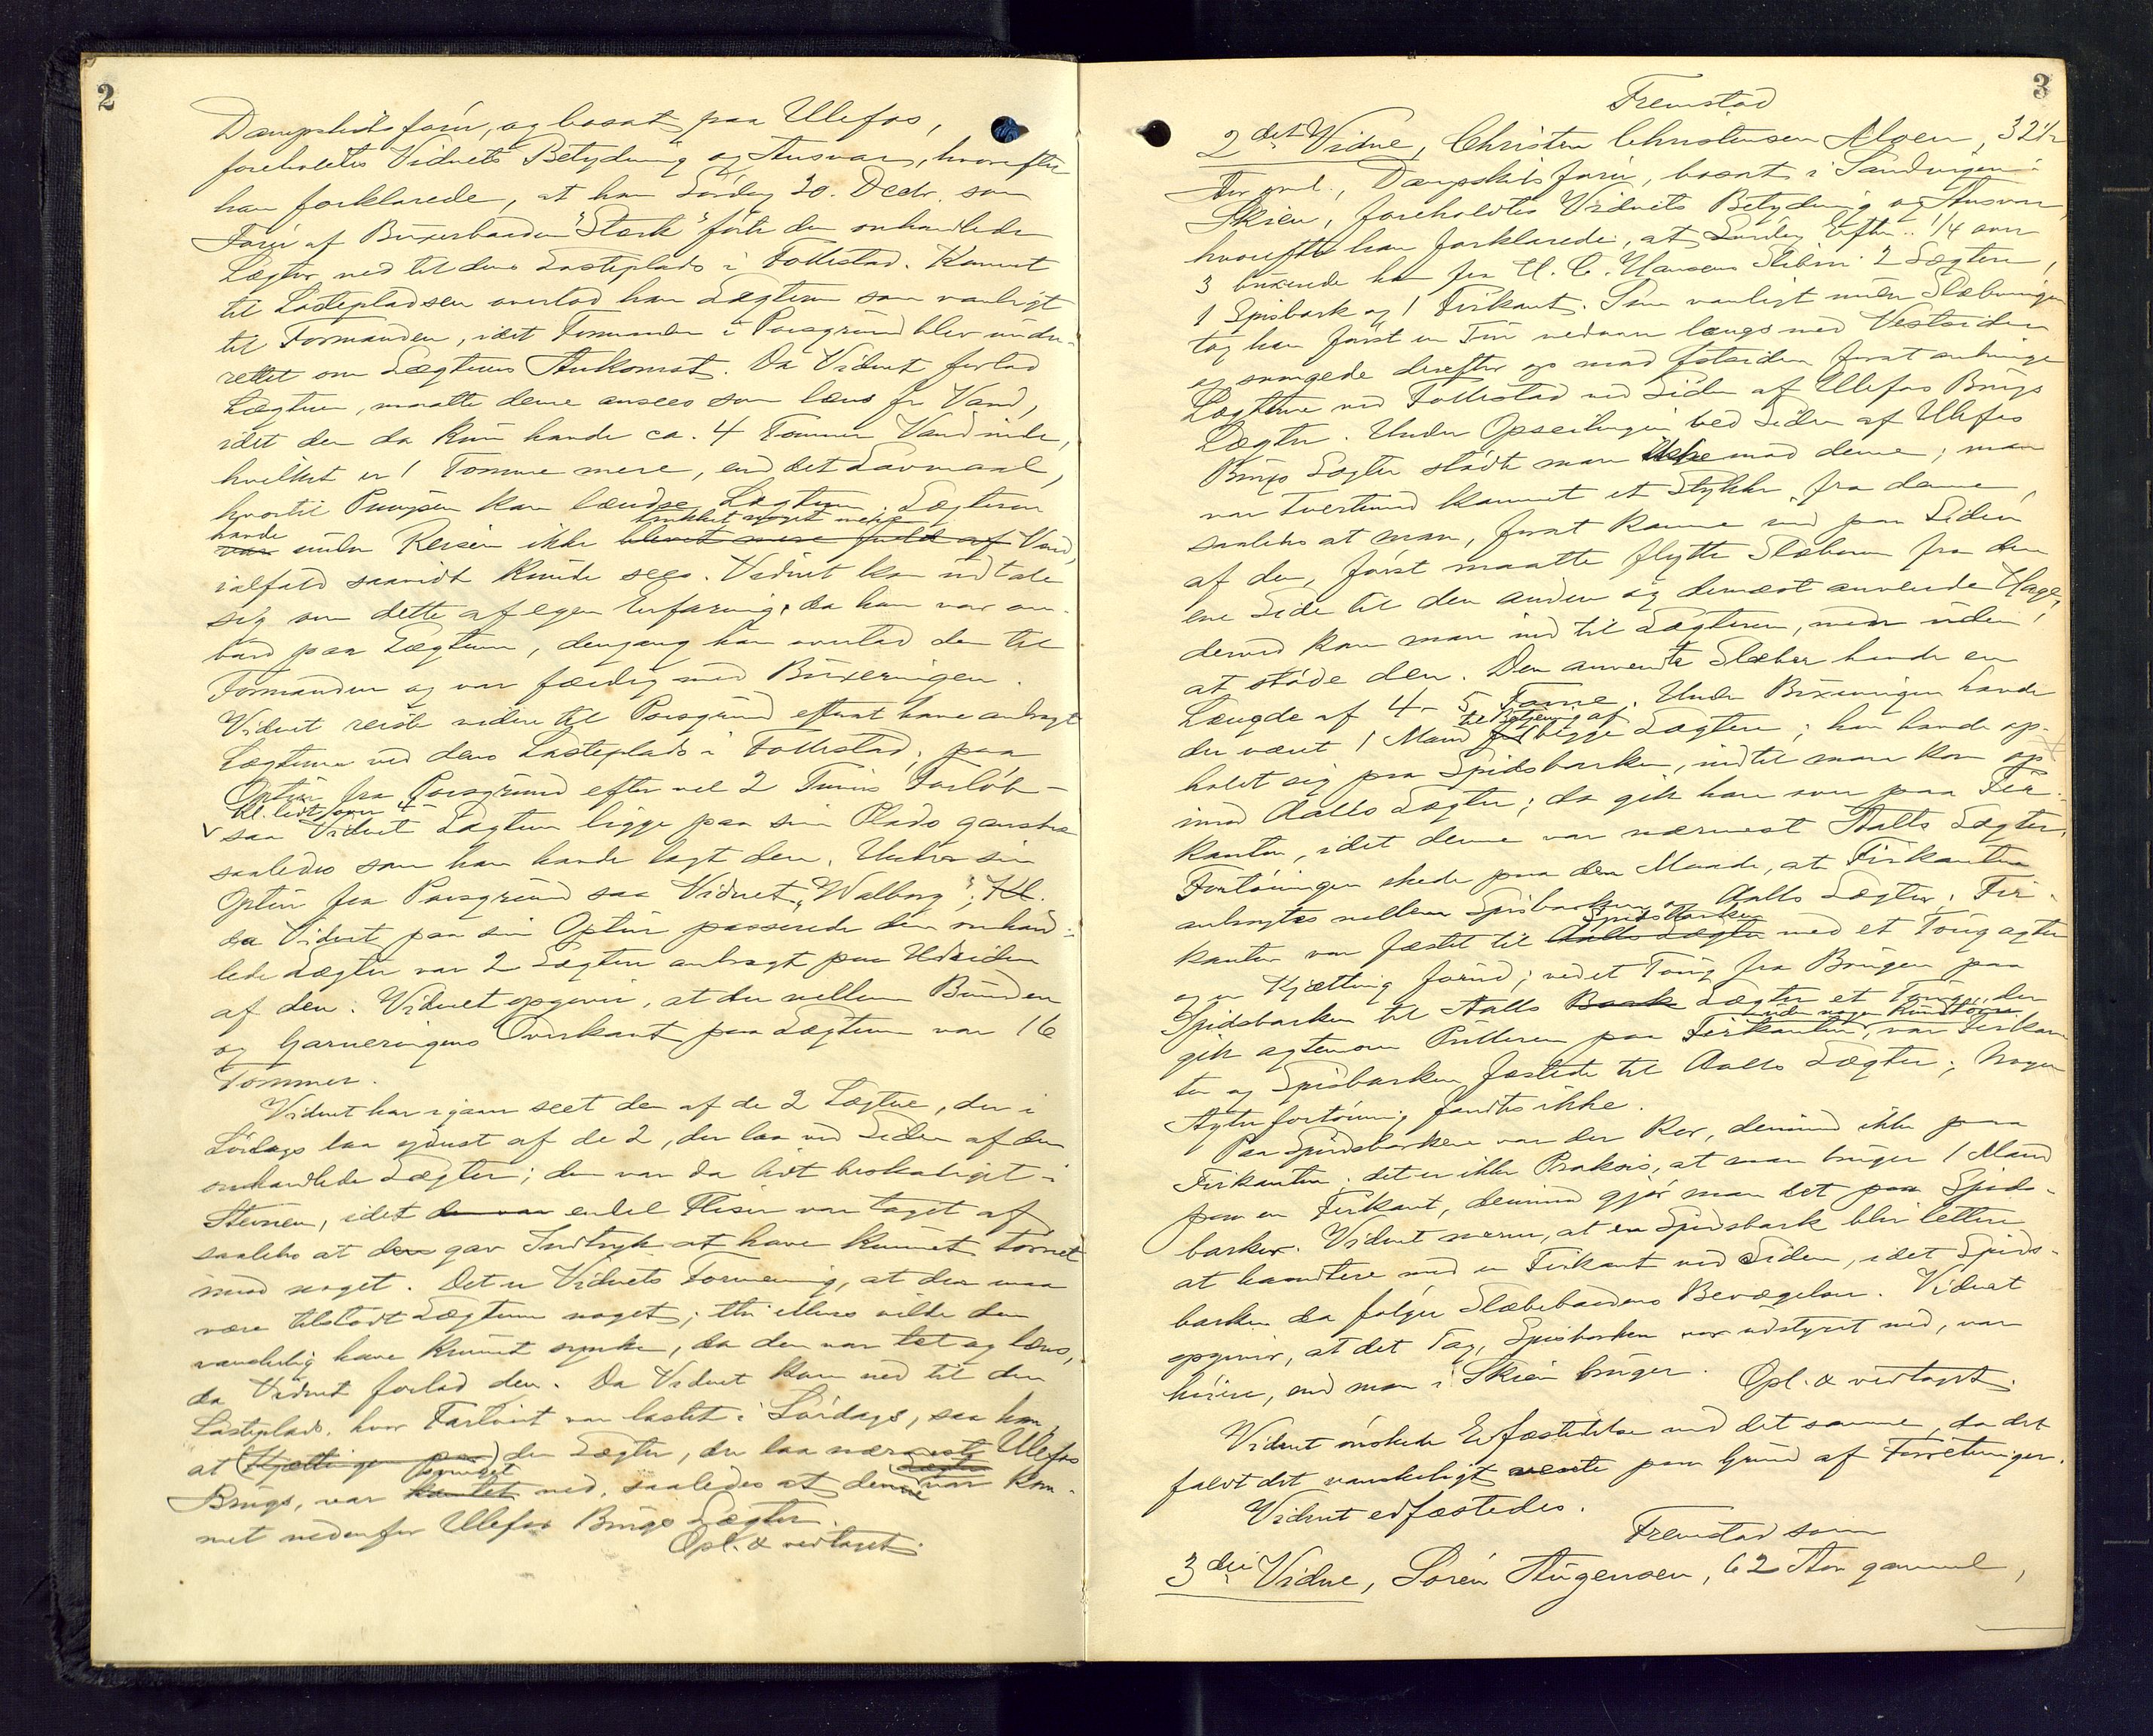 2
Dampskibsfører, og bosat paa Ulefos,
foreholdtes Vidnets Betydning og Ansvar, hvorefter
han forklarede, at han Lørdag 30. Decbr. som
Fører af Buxerbaaden "Stærk" førte den omhandlede
Lægter ned til dens Lasteplads i Follestad. Kommet
til Lastepladsen overlod han Lægteren som vanligt
til Formanden, idet Formanden i Porsgrund blev under-
rettet om Lægterens Ankomst. Da Vidnet forlod
Lægteren, maatte denne ansees som læns for Vand,
idet den da kun havde ca. 4 Tommer Vand inde,
hvilket er 1 Tomme mere, end det Lavmaal,
hvortil Pumpen kan lændse Lægteren. Lægteren
trukket noget mere
havde
var under Reisen ikke blevet mere fuld af Vand,
ialfald saavidt kunde sees. Vidnet kan udtale
sig om dette af egen Erfaring, da han var om-
bord paa Lægteren, dengang han overlod den til
Formanden og var færdig med Buxeringen.
Vidnet reiste videre til Porsgrund efterat have anbragt
Lægteren ved dens Lasteplads i Follestad; paa
Optur fra Porsgrund efter vel 2 Timers Forløb -
Kl. lidt over
saa Vidnet Lægteren ligge paa sin Plads ganske
saaledes som han havde lagt den. Under sin
Optur fra Porsgrund saa Vidnet "Walborg"; Kl.
da Vidnet paa sin Optur passerede den omhand-
lede Lægter var 2 Lægtere anbragt paa Udsiden
af den. Vidnet opgiver, at der mellem Bunden
og Garneringens Overkant paa Lægteren var 16
Tommer.
Vidnet har igaar seet den af de 2 Lægtere, der i
Lørdags laa yderst af de 2, der laa ved Siden af den
omhandlede Lægter; den var da lidt beskadiget i
Stevnen, idet der var endel Fliser var taget af
saaledes at den gav Indtryk at have kunnet tørnet
mod noget. Det er Vidnets Formening, at der maa
være tilstødt Lægteren noget; thi ellers vilde den
vanskelig have kunnet synke, da den var tæt og læns,
da Vidnet forlod den. Da Vidnet kom ned til den
Lasteplads, hvor Fartøiet var lastet i Lørdags, saa han,
at Kjættingen paa den Lægter, der laa nærmest Ulefos
Lægter
Brugs, var ned, saaledes at denne var kom-
met nedenfor Ulefos Brugs Lægter.
Opl. & vedtaget.
3
Fremstod
2det Vidne, Christen Christensen Moen, 32 1/2
Aar gml., Dampskibsfører, bosat i Sandvigen i
Skien, foreholdtes Vidnets Betydning og Ansvar,
hvorefter han forklarede, at Lørdag Efterm. 1/4 over
3 buxerede han fra H. C. Hansens Sliberi 2 Lægtere,
1 Spisbark og 1 Firkant. Som vanligt under Slæbningen
tog han først en Tur nedover langs med Vestsiden
og svingede derefter op mod Østsiden forat anbringe
Lægterne ved Follestad ved Siden af Ulefos Brugs
Lægter. Under Opseilingen ved Siden af Ulefos
Brugs Lægter stødte man ikke mod denne; man
var tvertimod kommet et Stykke fra denne,
saaledes at man, forat komme ind paa Siden
af den, først maatte flytte Slæberen fra den
ene Side til den anden og dernæst anvende Hage;
derved kom man ind til Lægteren, men uden
at støde den. Den anvendte Slæber havde en
Længde af 4 - 5 Favne. Under Buxeringen havde
til Betjening af
der været 1 Mand paa begge Lægtere; han havde op-
holdt sig paa Spidsbarken, indtil man kom op
imod Aalls Lægter; da gik han over paa Fir-
kanten, idet denne var nærmest Aalls Lægter.
Fortøiningen skede paa den Maade, at Firkanten
anbragtes mellem Spisbarken og Aalls Lægter; Fir-
Spidsbarken
kanten var fæstet til Aalls Lægter med et Toug agter
og en Kjætting forud; ved et Toug fra Bougen paa
Spidsbarken til Aalls Bark Lægter et Toug, der
uden nogen Rundtørn
gik agtenom Pulleren paa Firkanten, var Firkan-
ten og Spisbarken fæstede til Aalls Lægter; Nogen
Agterfortøining fandtes ikke.
Paa Spidsbarken var der Ror, derimod ikke paa
Firkanten; det er ikke Praksis, at man bruger 1 Mand
paa en Firkant, derimod gjør man det paa Spids-
barker. Vidnet mener, at en Spidsbark blir lettere
at haandtere med en Firkant ved Siden, idet Spids-
barken da følger Slæbebaadens Bevægelser. Vidnet
opgiver, at det Tag, Spisbarken var udstyret med, var
høiere, end man i Skien bruger. Opl. & vedtaget.
Vidnet ønskede Edfæstelse med det samme, da det
faldt det vanskeligt vente paa Grund af Forretninger.
Vidnet edfæstedes.
Fremstod som
3die Vidne, Søren Aügensen, 62 Aar gammel,